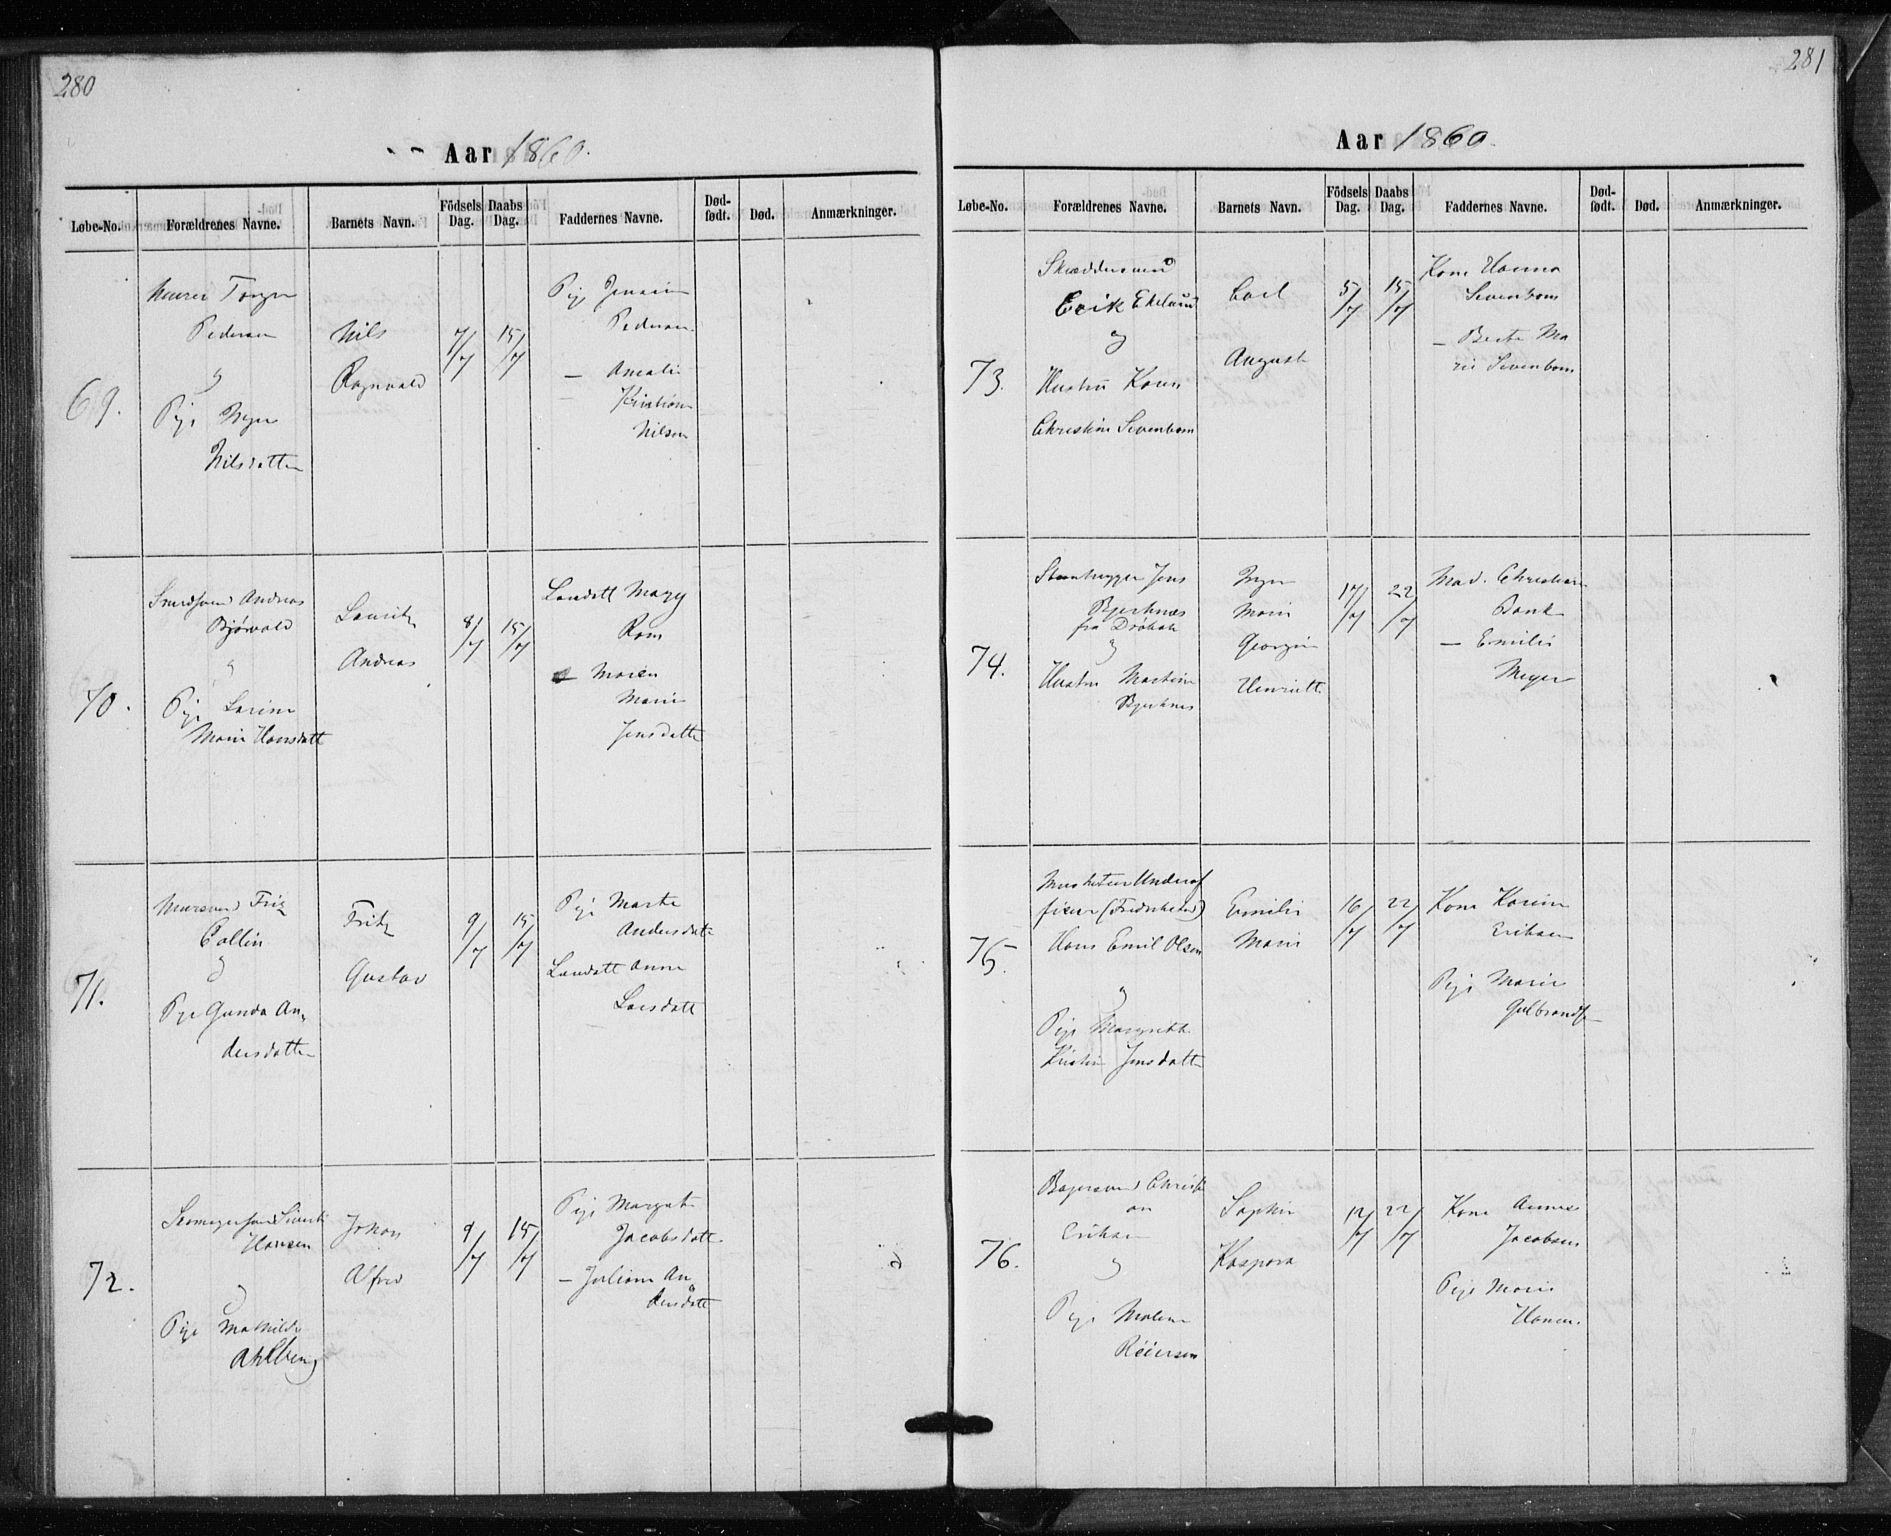 280
Aar 1860.
Løbe-No. Forældrenes Navne. Barnets Navn. Födsels Dag. Daabs Dag. Faddernes Navne. Død-født. Død. Anmærkninger.
69.
Murer Torger
Pedersen
og
Pige Inger
Nilsdatter
Nils
Ragnvald
7/7 15/7
Pige
Pedersen
— Amalie
Kristiane
Nilsen
70.
Smedsvend Andreas
Bjørvald
Pige Larine
Marie Hansdatt
Lauritz
Andreas
8/7 15/7
Landatt Mary
Rom
— Maren
Marie
Jensdatte
71.
Mursvend Friz
Collin
og
Pige Gunda An-
dersdatter
Fritz
Gustav
9/7 15/7
Pige Marte
Andersdatte
Landatt Anne
Larsdatt
72.
Hansen
og
Pige Mathilde
Ahlberg
Johan
Alfred
9/7 15/7
Pige Margrete
Jacobsdatt
— Juliane An
dersdatte
281
Aar 1860.
Løbe-No. Forældrenes Navne. Barnets Navn. Födsels Dag. Daabs Dag. Faddernes Navne. Død-født. Død. Anmærkninger.
73.
Skræddersvend
Erik Ekelund
og
Hustru Karen
Christine Sevenbom
Carl
August
5/7 15/7
Kone Hanna
Sevenbom
— Berte Ma
rie Sevenbom
74.
Stenhugger Jens
Bjerknæs
fra Drøbak
og
Hustru Martine
Bjerknes
Inger
Marie
Georgine
Henriette
17/7 22/7
Mad. Christiane
Bank
— Emilie
Meyer
75.
Musketeer Underof
ficeer (Frederiksted)
Hans Emil Olsen
og
Pige Margrethe
Kristine Jensdatte
Emilie
Marie
16/7 22/7
Kone Karine
Eriksen
Pige Marie
Gulbrands
76.
Bagersvend Christi
an
Eriksen
og
Pige Malene
Reiersen
Sophie
Kaspara
12/7 22/7
Kone Annes
Jacobsen
Pige Marie
Hansen.